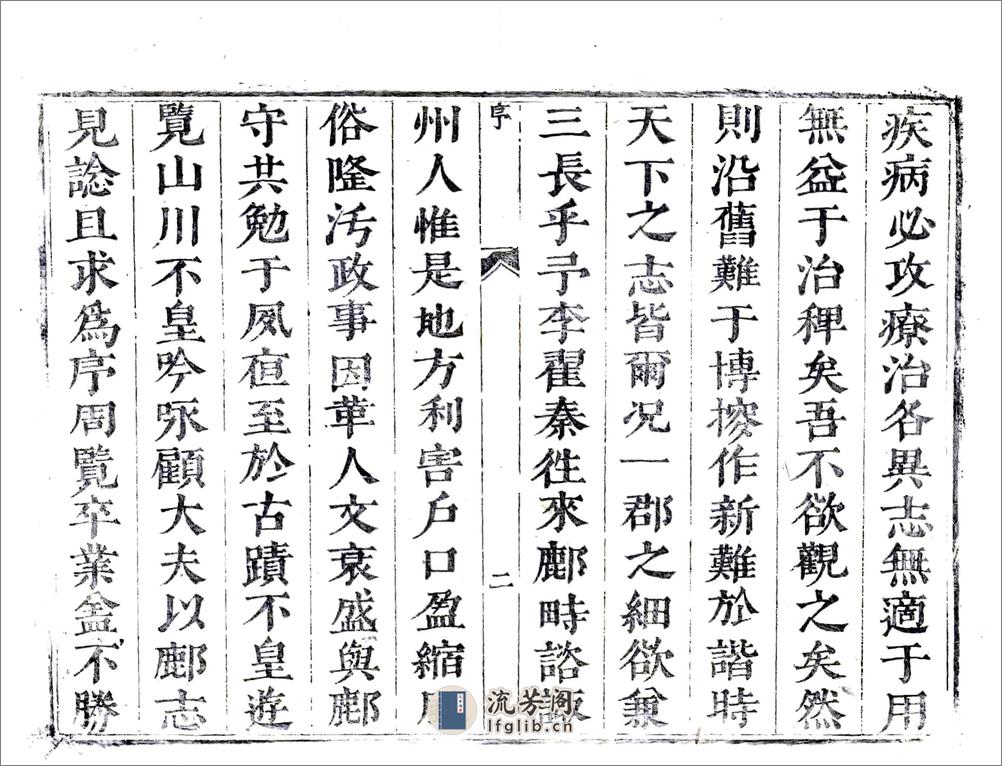 疾病必攻療治各異志無適于用
無益于治稗矣吾不欲觀之矣然
則沿舊難于博作新難於諧時
天下之志皆爾况一郡之細欲兼
三長乎予李翟秦徃來鄜畤諮諏
序 二
州人惟是地方利害戶口盈縮
俗隆汚政事因革人文衰盛與鄜
守共勉于夙夜至於古蹟不皇遊
覽山川不皇吟咏顧大夫以鄜志
見諗且求爲序周覽卒業不勝
流芳阁
lfglib.cn